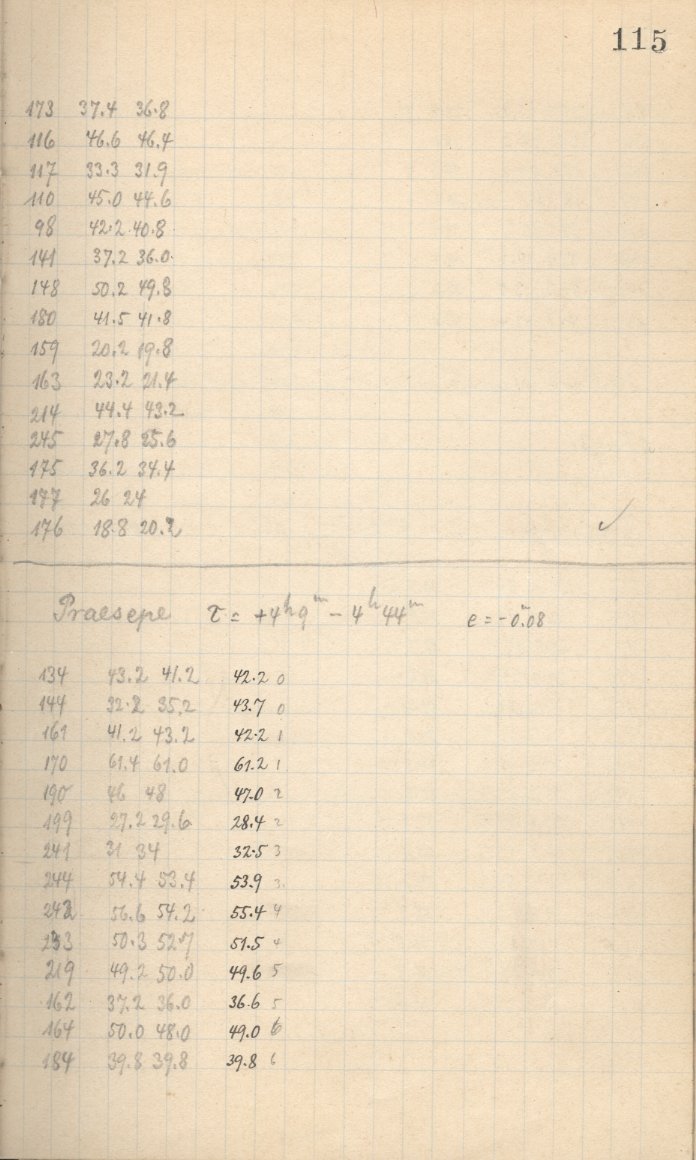 115
173 37.4 36.8
116 46.6 46.4
117 33.3 31.9
110 45.0 44.6
98 42.2 40.8
141 37.2 36.0
148 50.2 49.8
180 41.5 41.8
159 20.2 19.8
163 23.2 21.4
214 44.4 43.2
245 27.8 25.6
175 36.2 34.4
177 26 24
176 18.8 20.2
✓
Praesepe τ = +4ʰ9ᵐ - 4ʰ44ᵐ e = -0ᵐ.08
134 43.2 41.2 42.2 0
144 35.2 43.7 0
161 41.2 43.2 42.2 1
170 61.4 61.0 61.2 1
190 46 48 47.0 2
199 27.2 29.6 28.4 2
241 31 34 32.5 3
244 54.4 53.4 53.9 3
242 56.6 54.2 55.4 4
50.3 52.7 51.5 4
219 49.2 50.0 49.6 5
162 37.2 36.0 36.6 5
164 50.0 48.0 49.0 6
184 39.8 39.8 39.8 6